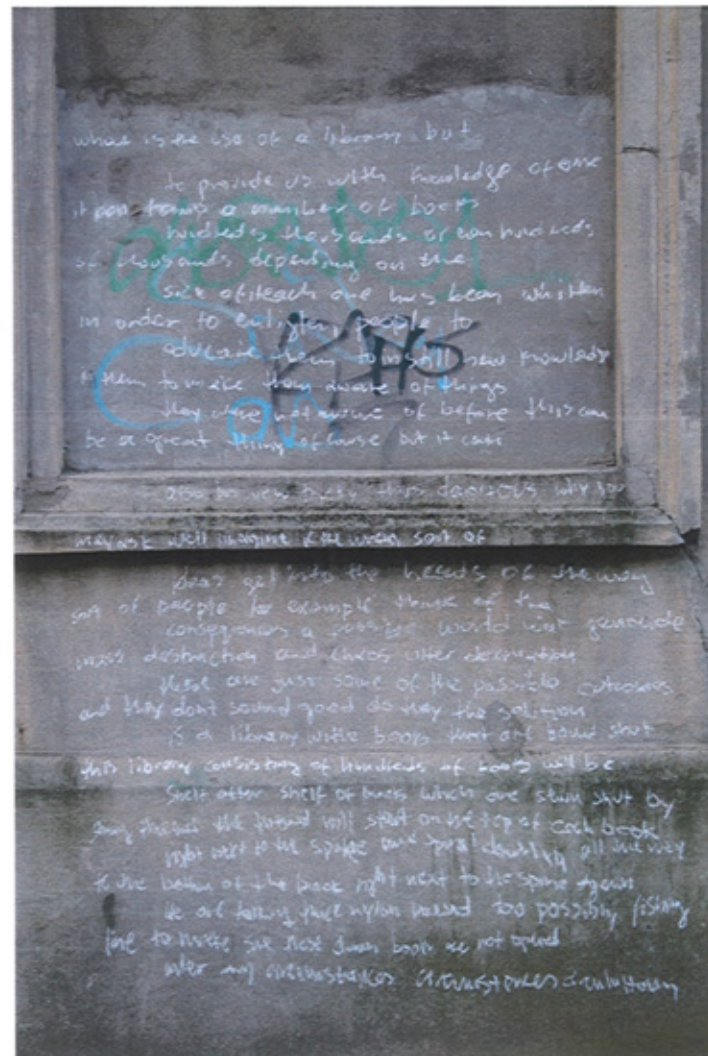 what is the use of a library but
to provide us with knowledge of one
it contains a number of books
hundreds thousands or even hundreds
of thousands depending on the
size of it each one has been written
in order to enlighten people to
educate them to instill new knowledge
in them to make them aware of things
they were not aware of before this can
be a great thing of course but it can
also be very very dangerous why you
may ask well imagine if the wrong sort of
ideas get into the heads of the wrong
sort of people for example think of the
consequences a possible world war genocide
mass destruction and chaos utter
these are just some of the possible outcomes
and they dont sound good do they the solution
is a library with books that are bound shut
this library consisting of hundreds of books will be
shelf after shelf of books which are shut by
the thread will start on the top of each book
right next to the spine and all the way
to the bottom of the book right next to the spine again
we are talking nylon thread too possibly fishing
line to make sure these books are not opened
under any circumstances circumstances
KAHS